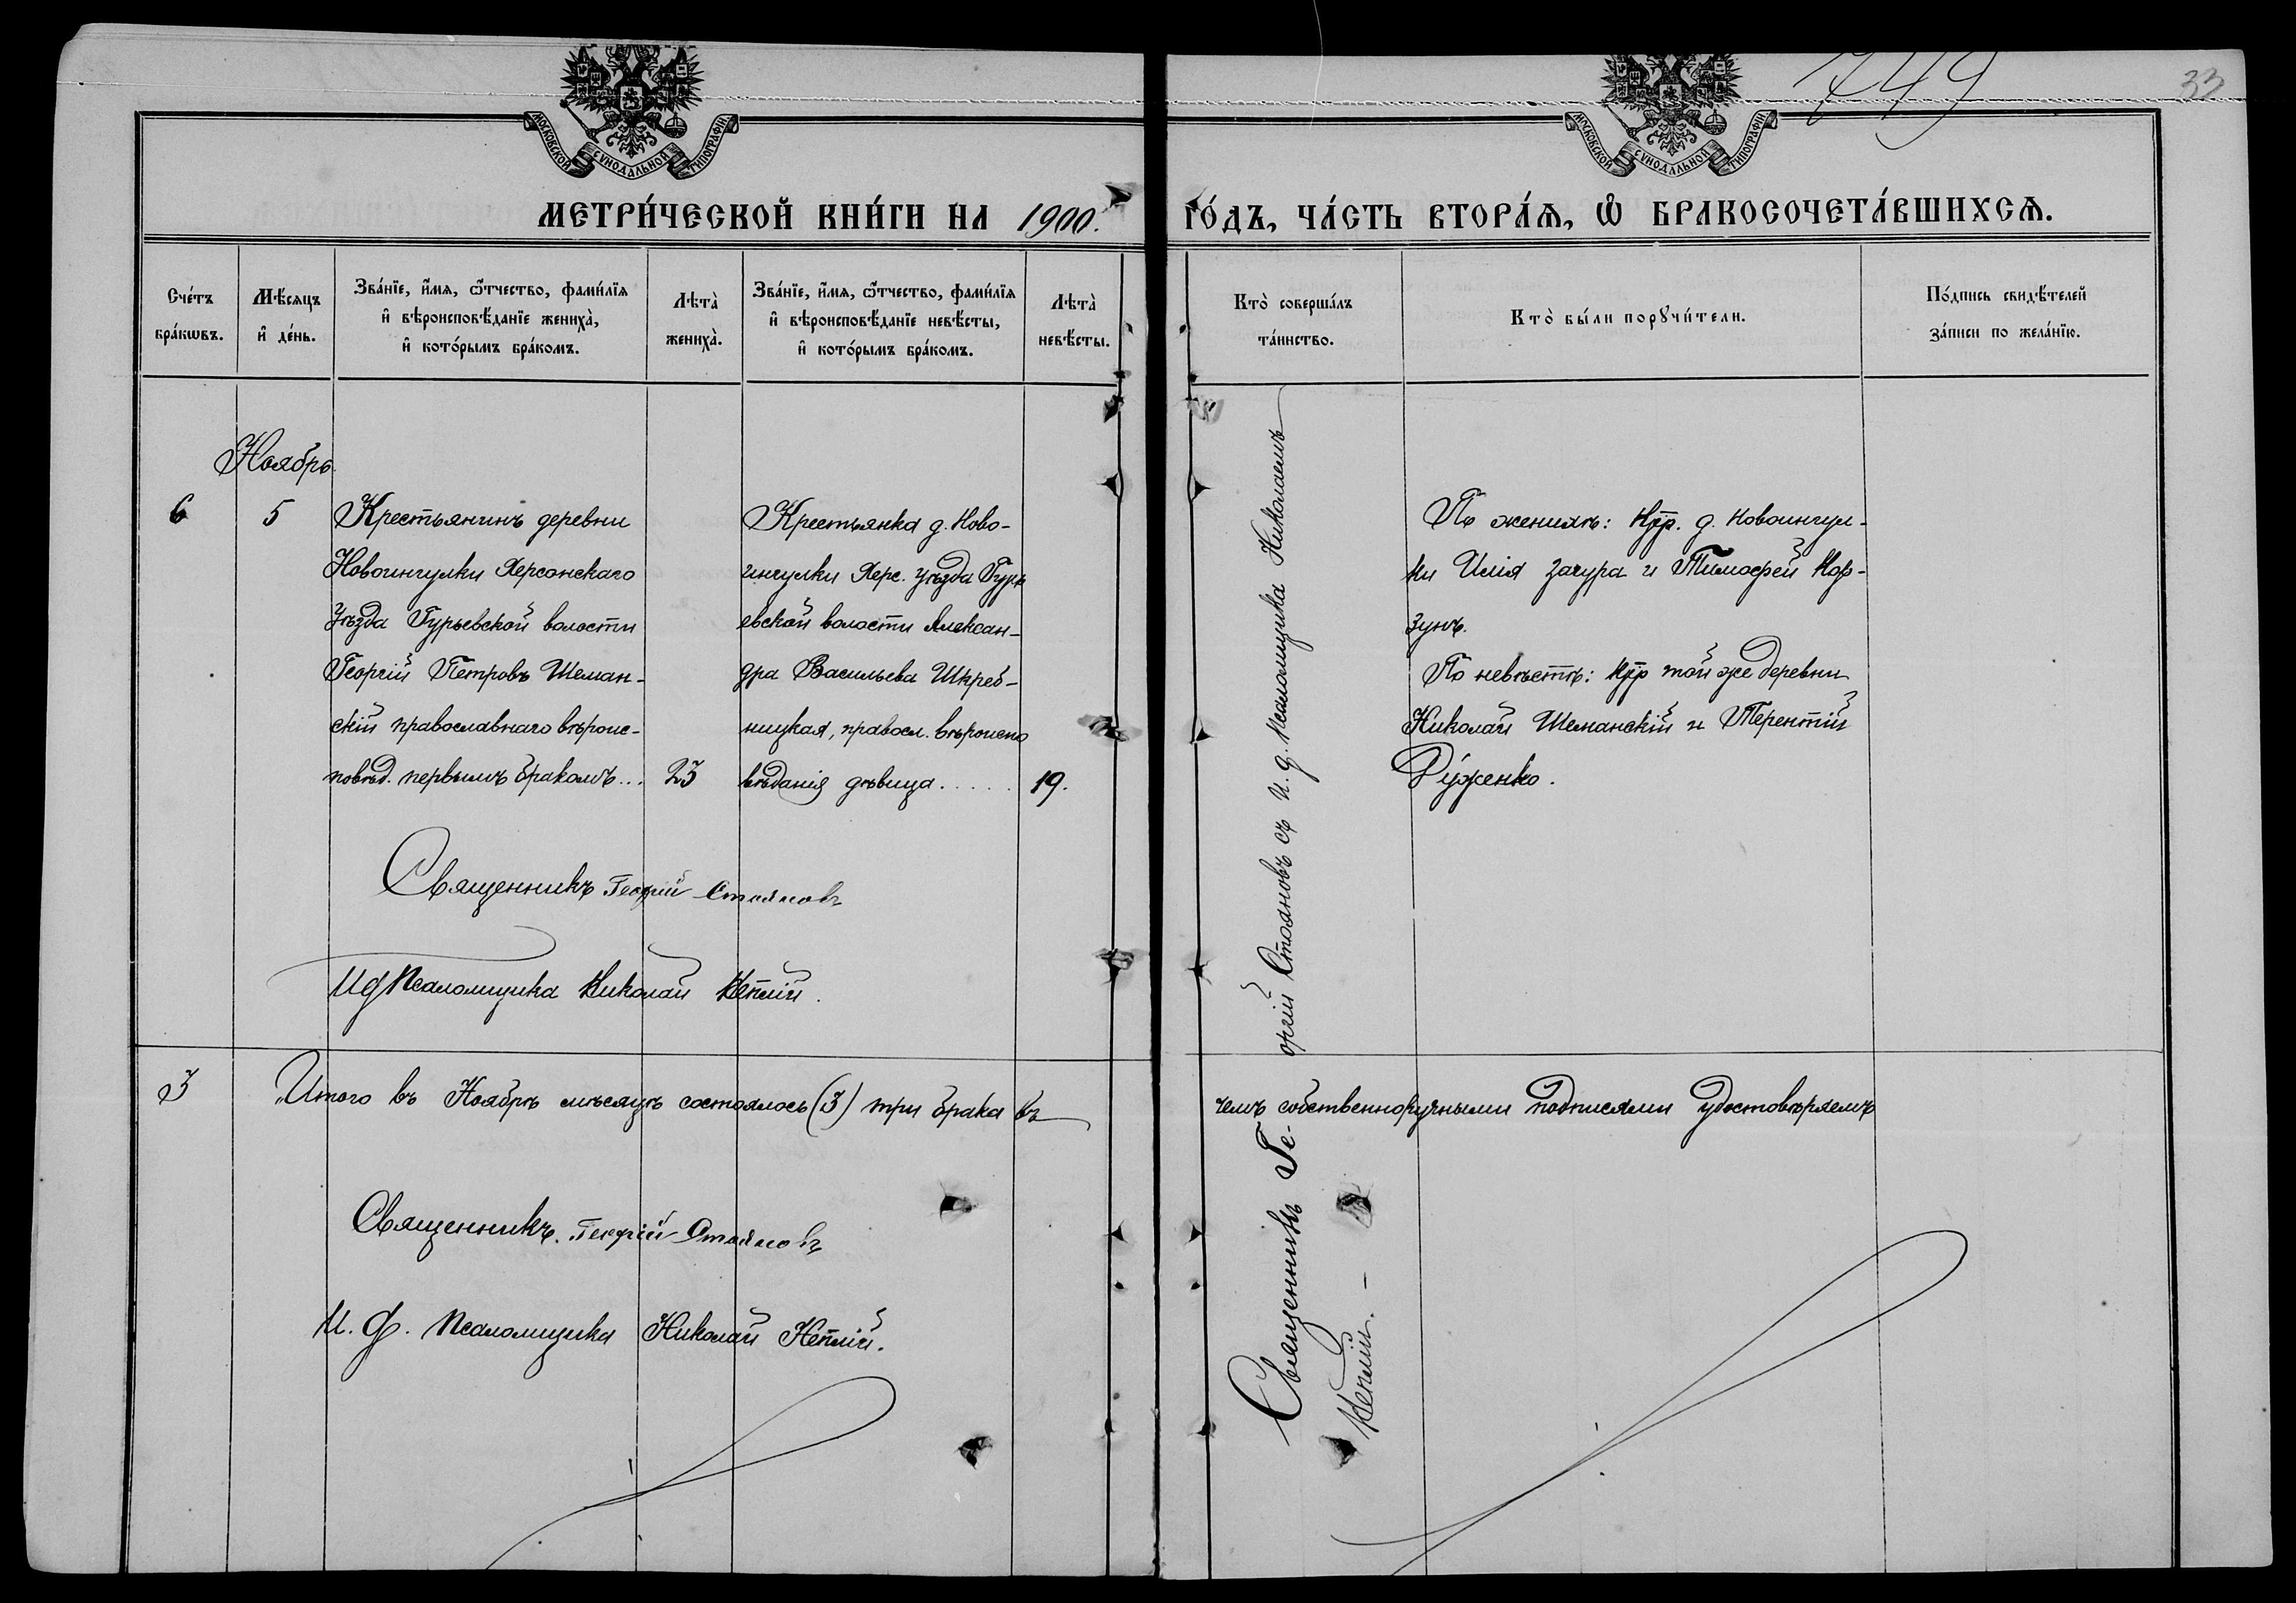 749
33
МОСКОВСКОЙ СѴНОДАЛЬНОЙ ТИПОГРАФІИ
МОСКОВСКОЙ СѴНОДАЛЬНОЙ ТИПОГРАФІИ
МЕТРИ́ЧЕСКОЙ КНИ́ГИ НА 1900. ГО́ДЪ, ЧА́СТЬ ВТОРА́Ѧ, Ѽ БРАКОСОЧЕТА́ВШИХСѦ.
Сче́тъ
бра́кѡвъ.
Мѣ́сѧцъ
и҆ де́нь.
Зва́нїе, и҆́мѧ, ѻ҆́тчество, фами́лїѧ
и҆ вѣроисповѣ́данїе жениха̀,
и҆ кото́рымъ бра́комъ.
Лѣта̀
жениха̀.
Зва́нїе, и҆́мѧ, ѻ҆́тчество, фами́лїѧ
и҆ вѣроисповѣ́данїе невѣ́сты,
и҆ кото́рымъ бра́комъ.
Лѣта̀
невѣ́сты.
Кто̀ соверша́лъ
та́инство.
Кто̀ бы́ли порꙋчи́тели.
По́дпись свидѣ́телей
за́писи по жела́нїю.
Ноябрь.
6
5
Крестьянинъ деревни
Новоингулки Херсонскаго
Уѣзда Гурьевской волости
Георгій Петровъ Шеман-
скій православнаго вѣроис-
повѣд. первымъ бракомъ...
23
Крестьянка д. Ново-
ингулки Херс. уѣзда Гурь
евской волости Алексан-
дра Васильева Шкреб-
ницкая, правосл. вѣроиспо
вѣданія дѣвица......
19.
Священникъ Георгій Стояновъ
ИД Псаломщика Николай
Священникъ Ге-оргій Стояновъ съ и. д. псаломщика Николаемъ
По женихѣ: кр. д. Новоингул-
ки Илія Загура и Тимофей Кор-
зунъ.
По невѣстѣ: кр той же деревни
Николай Шеманскій и Терентій
Руженко.
3
Итого въ Ноябрѣ мѣсяцѣ состоялось (3) три брака въ чемъ собственноручными подписями удостовѣряемъ
Священникъ. Георгій Стояновъ
И. Д. Псаломщика Николай